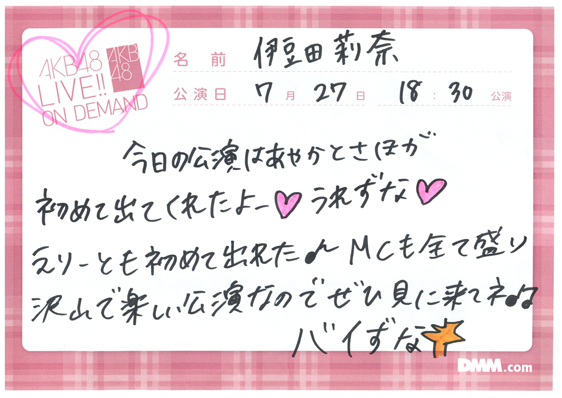 AKB48
LIVE!!
ON DEMAND
AKB
48
名前 伊豆田莉奈
公演日 7月27日 18:30 公演
今日の公演はあやかとさほが
初めて出てくれたよー♡うれずな♡
えりーとも初めて出れた♪ MCも全て盛り
沢山で楽しい公演なのでぜひ見に来てネ♪♪
バイずな☆
DMM.com